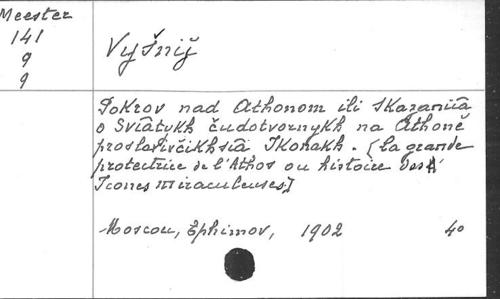 Meester
141
9
9
Vyšnij
Pokrov nad Athonom ili Skazaniîa
o Svîatykh čudotvornykh na Athoně
proslavivčikhsîa Ikonakh. (La grande
protectrice de l'Athos ou histoire des
Icones miraculeuses)
Moscou, Ephimov, 1902 40